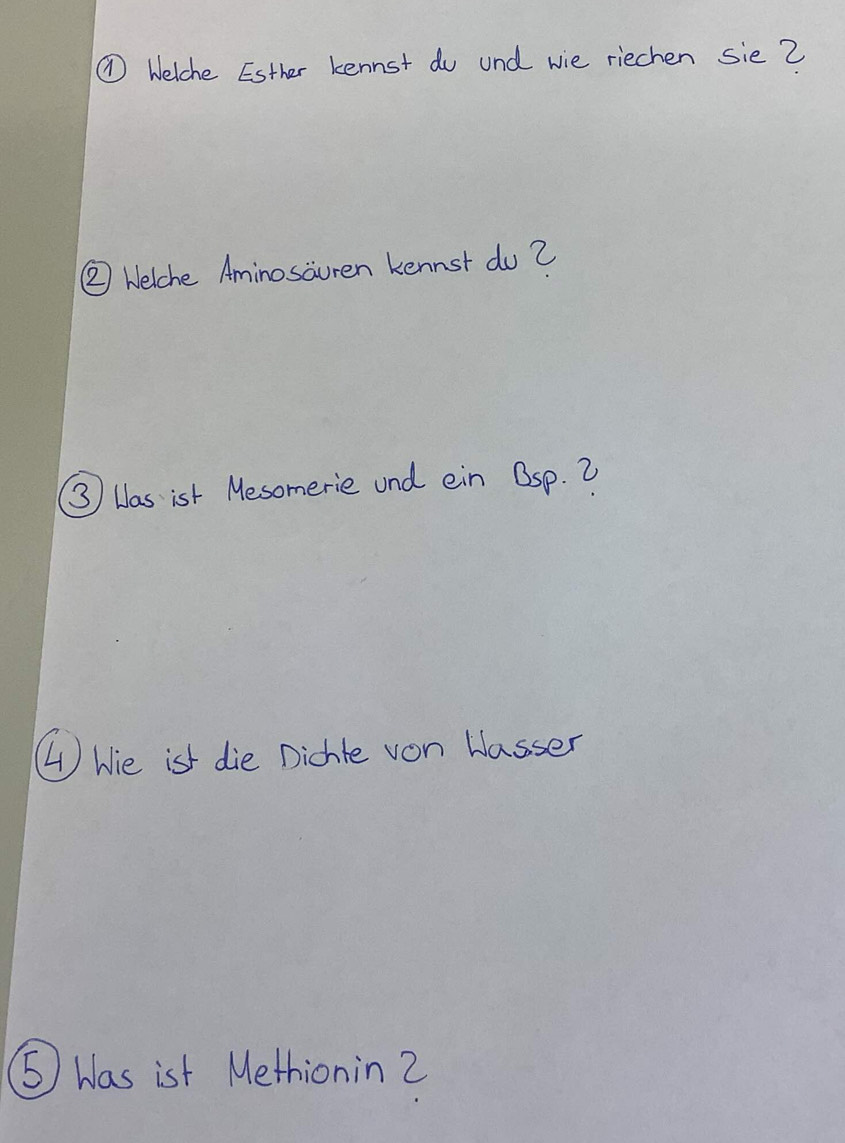 ① Welche Esther kennst du und wie riechen sie?
② Welche Aminosäuren kennst du?
③ Was ist Mesomerie und ein Bsp.?
④ Wie ist die Dichte von Wasser
⑤ Was ist Methionin?